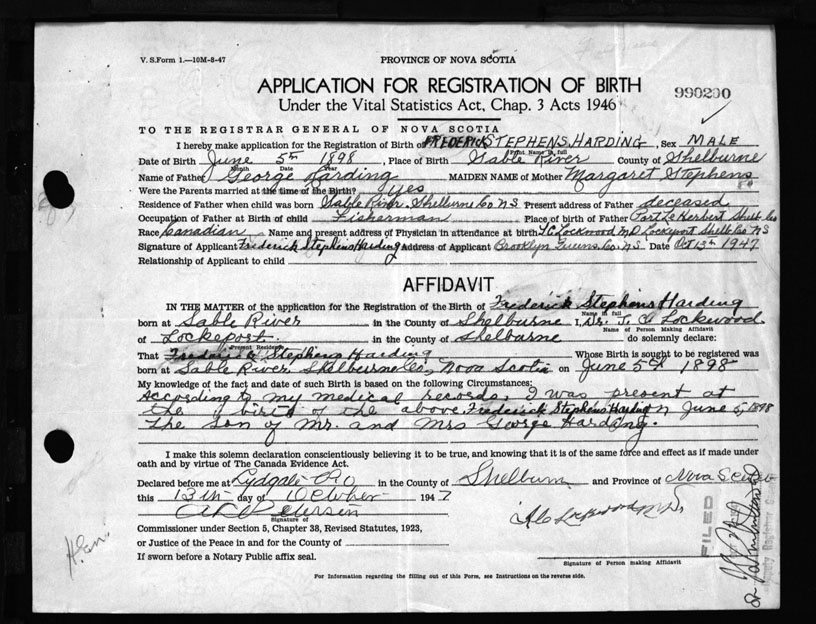 V. S. Form 1.—10M-8-47
PROVINCE OF NOVA SCOTIA
APPLICATION FOR REGISTRATION OF BIRTH
990200
Under the Vital Statistics Act, Chap. 3 Acts 1946
TO THE REGISTRAR GENERAL OF NOVA SCOTIA
I hereby make application for the Registration of Birth of FREDERICK STEPHENS HARDING, Sex MALE
Print Name in full
Date of Birth June 5th 1898, Place of Birth Sable River County of Shelburne
Month Date Year
Name of Father George Harding MAIDEN NAME of Mother Margaret Stephens
Were the Parents married at the time of the Birth? yes
Residence of Father when child was born Sable River, Shelburne Co NS Present address of Father deceased
Occupation of Father at Birth of child Fisherman Place of birth of Father Port Le Herbert Shelb. Co
Race Canadian Name and present address of Physician in attendance at birth Lockwood MD Lockeport Shelb. Co NS
Signature of Applicant Frederick Stephens Harding Address of Applicant Brooklyn Queens. Co. N.S. Date Oct 13th 1947
Relationship of Applicant to child
AFFIDAVIT
IN THE MATTER of the application for the Registration of the Birth of Frederick Stephens Harding
Name in full
born at Sable River in the County of Shelburne I, Dr. Lockwood.
Name of Person Making Affidavit
of Lockeport. in the County of Shelburne do solemnly declare:
Present Residence
That Frederick Stephens Harding Whose Birth is sought to be registered was
born at Sable River, Shelburne Co, Nova Scotia on June 5th 1898
My knowledge of the fact and date of such Birth is based on the following Circumstances:
According to my medical records, I was present at
the birth of the above Frederick Stephens Harding June 5, 1898
The son of Mr. and Mrs George Harding.
I make this solemn declaration conscientiously believing it to be true, and knowing that it is of the same force and effect as if made under
oath and by virtue of The Canada Evidence Act.
Declared before me at Lydgate in the County of Shelburn and Province of Nova Scotia
this 13th day of October 1947
Signature of
Commissioner under Section 5, Chapter 38, Revised Statutes, 1923,
or Justice of the Peace in and for the County of
If sworn before a Notary Public affix seal.
Signature of Person making Affidavit
FILED
For Information regarding the filling out of this Form, see Instructions on the reverse side.